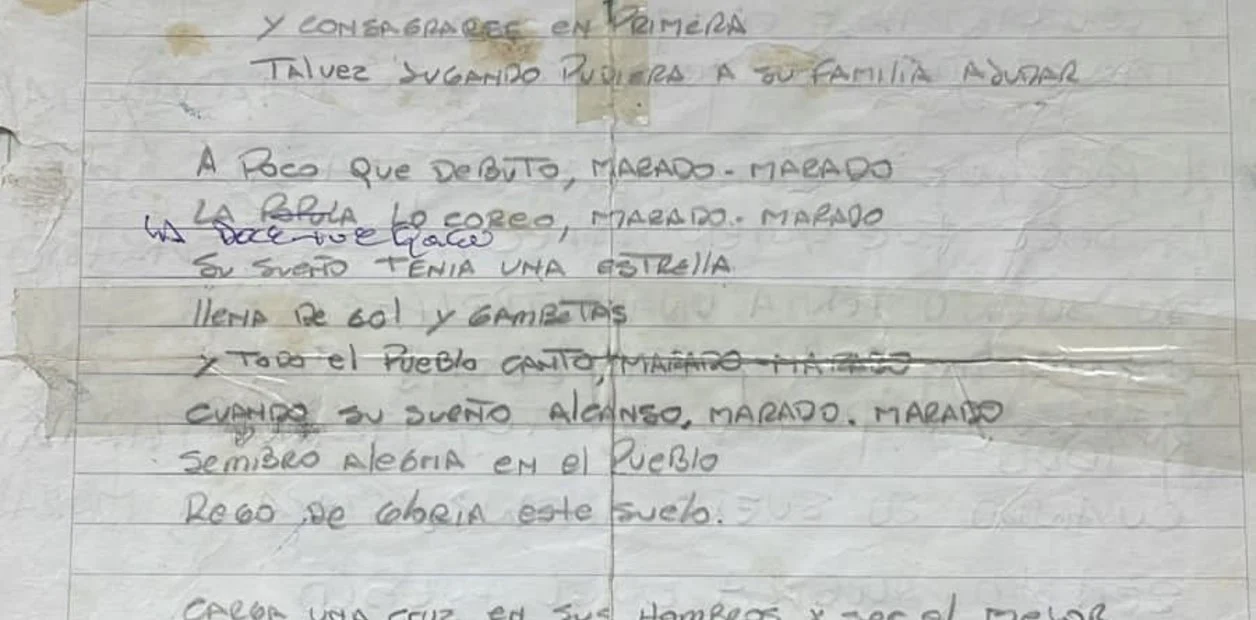 Y CONSAGRARSE EN PRIMERA
TALVEZ JUGANDO PUDIERA A SU FAMILIA AJUDAR
A POCO QUE DEBUTO, MARADO - MARADO
LA LO COREO, MARADO. MARADO
LA DOCE FUE
SU SUEÑO TENIA UNA ESTRELLA
llENA DE GOl Y GAMBETAS
Y TODO el PUEBlO CANTO, MARADO - MARADO
CUANDO SU SUEÑO AlCANSO, MARADO. MARADO
SEMBRO AlEGRIA EN el PUEBlO
REGO DE GlORIA este suelo.
CARGA UNA CRUZ EN SUS HOMBROS Y SER el MEJOR